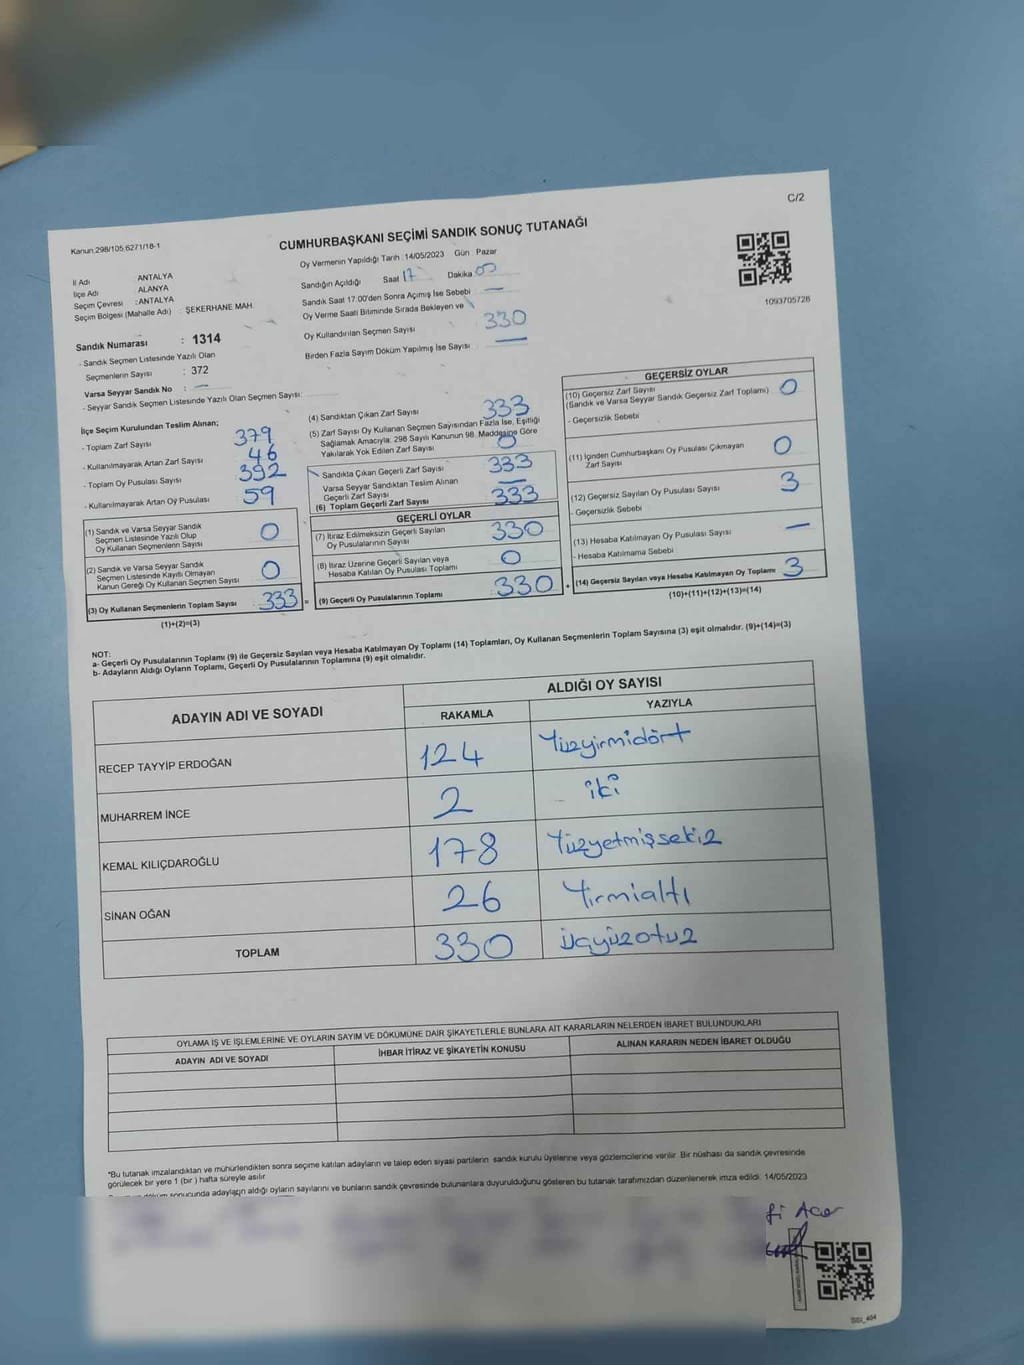 C/2
Kanun:298/105,6271/18-1
CUMHURBAŞKANI SEÇİMİ SANDIK SONUÇ TUTANAĞI
Oy Vermenin Yapıldığı Tarih : 14/05/2023 Gün : Pazar
İl Adı : ANTALYA
İlçe Adı : ALANYA
Seçim Çevresi : ANTALYA
Seçim Bölgesi (Mahalle Adı) : ŞEKERHANE MAH.
Sandık Numarası : 1314
- Sandık Seçmen Listesinde Yazılı Olan
Seçmenlerin Sayısı : 372
Varsa Seyyar Sandık No : —
- Seyyar Sandık Seçmen Listesinde Yazılı Olan Seçmen Sayısı:
Sandığın Açıldığı Saat 17 Dakika 00
Sandık Saat 17.00'den Sonra Açımış İse Sebebi —
Oy Verme Saati Bitiminde Sırada Bekleyen ve
Oy Kullandırılan Seçmen Sayısı 330
Birden Fazla Sayım Döküm Yapılmış İse Sayısı —
1093705728
İlçe Seçim Kurulundan Teslim Alınan;
- Toplam Zarf Sayısı 379
- Kullanılmayarak Artan Zarf Sayısı 46
- Toplam Oy Pusulası Sayısı 392
- Kullanılmayarak Artan Oy Pusulası 59
(1) Sandık ve Varsa Seyyar Sandık
Seçmen Listesinde Yazılı Olup
Oy Kullanan Seçmenlerin Sayısı 0
(2) Sandık ve Varsa Seyyar Sandık
Seçmen Listesinde Kayıtlı Olmayan
Kanun Gereği Oy Kullanan Seçmen Sayısı 0
(3) Oy Kullanan Seçmenlerin Toplam Sayısı : 333
(1)+(2)=(3)
(4) Sandıktan Çıkan Zarf Sayısı 333
(5) Zarf Sayısı Oy Kullanan Seçmen Sayısından Fazla İse, Eşitliği
Sağlamak Amacıyla; 298 Sayılı Kanunun 98. Maddesine Göre
Yakılarak Yok Edilen Zarf Sayısı 0
Sandıkta Çıkan Geçerli Zarf Sayısı 333
Varsa Seyyar Sandıktan Teslim Alınan
Geçerli Zarf Sayısı —
(6) Toplam Geçerli Zarf Sayısı 333
GEÇERLİ OYLAR
(7) İtiraz Edilmeksizin Geçerli Sayılan
Oy Pusulalarının Sayısı 330
(8) İtiraz Üzerine Geçerli Sayılan veya
Hesaba Katılan Oy Pusulası Toplamı 0
= (9) Geçerli Oy Pusulalarının Toplamı 330 +
GEÇERSİZ OYLAR
(10) Geçersiz Zarf Sayısı
(Sandık ve Varsa Seyyar Sandık Geçersiz Zarf Toplamı) 0
- Geçersizlik Sebebi
(11) İçinden Cumhurbaşkanı Oy Pusulası Çıkmayan
Zarf Sayısı 0
(12) Geçersiz Sayılan Oy Pusulası Sayısı 3
- Geçersizlik Sebebi
(13) Hesaba Katılmayan Oy Pusulası Sayısı —
- Hesaba Katılmama Sebebi
(14) Geçersiz Sayılan veya Hesaba Katılmayan Oy Toplamı 3
(10)+(11)+(12)+(13)=(14)
NOT:
a- Geçerli Oy Pusulalarının Toplamı (9) ile Geçersiz Sayılan veya Hesaba Katılmayan Oy Toplamı (14) Toplamları, Oy Kullanan Seçmenlerin Toplam Sayısına (3) eşit olmalıdır. (9)+(14)=(3)
b- Adayların Aldığı Oyların Toplamı, Geçerli Oy Pusulalarının Toplamına (9) eşit olmalıdır.
ADAYIN ADI VE SOYADI
ALDIĞI OY SAYISI
RAKAMLA YAZIYLA
RECEP TAYYİP ERDOĞAN 124 Yüzyirmidört
MUHARREM İNCE 2 iki
KEMAL KILIÇDAROĞLU 178 Yüzyetmişsekiz
SİNAN OĞAN 26 Yirmialtı
TOPLAM 330 üçyüzotuz
OYLAMA İŞ VE İŞLEMLERİNE VE OYLARIN SAYIM VE DÖKÜMÜNE DAİR ŞİKAYETLERLE BUNLARA AİT KARARLARIN NELERDEN İBARET BULUNDUKLARI
ADAYIN ADI VE SOYADI İHBAR İTİRAZ VE ŞİKAYETİN KONUSU ALINAN KARARIN NEDEN İBARET OLDUĞU
*Bu tutanak imzalandıktan ve mühürlendikten sonra seçime katılan adayların ve talep eden siyasi partilerin sandık kurulu üyelerine veya gözlemcilerine verilir. Bir nüshası da sandık çevresinde
görülecek bir yere 1 (bir) hafta süreyle asılır.
sonucunda adayların aldığı oyların sayılarını ve bunların sandık çevresinde bulunanlara duyurulduğunu gösteren bu tutanak tarafımızdan düzenlenerek imza edildi. 14/05/2023
fi Acar